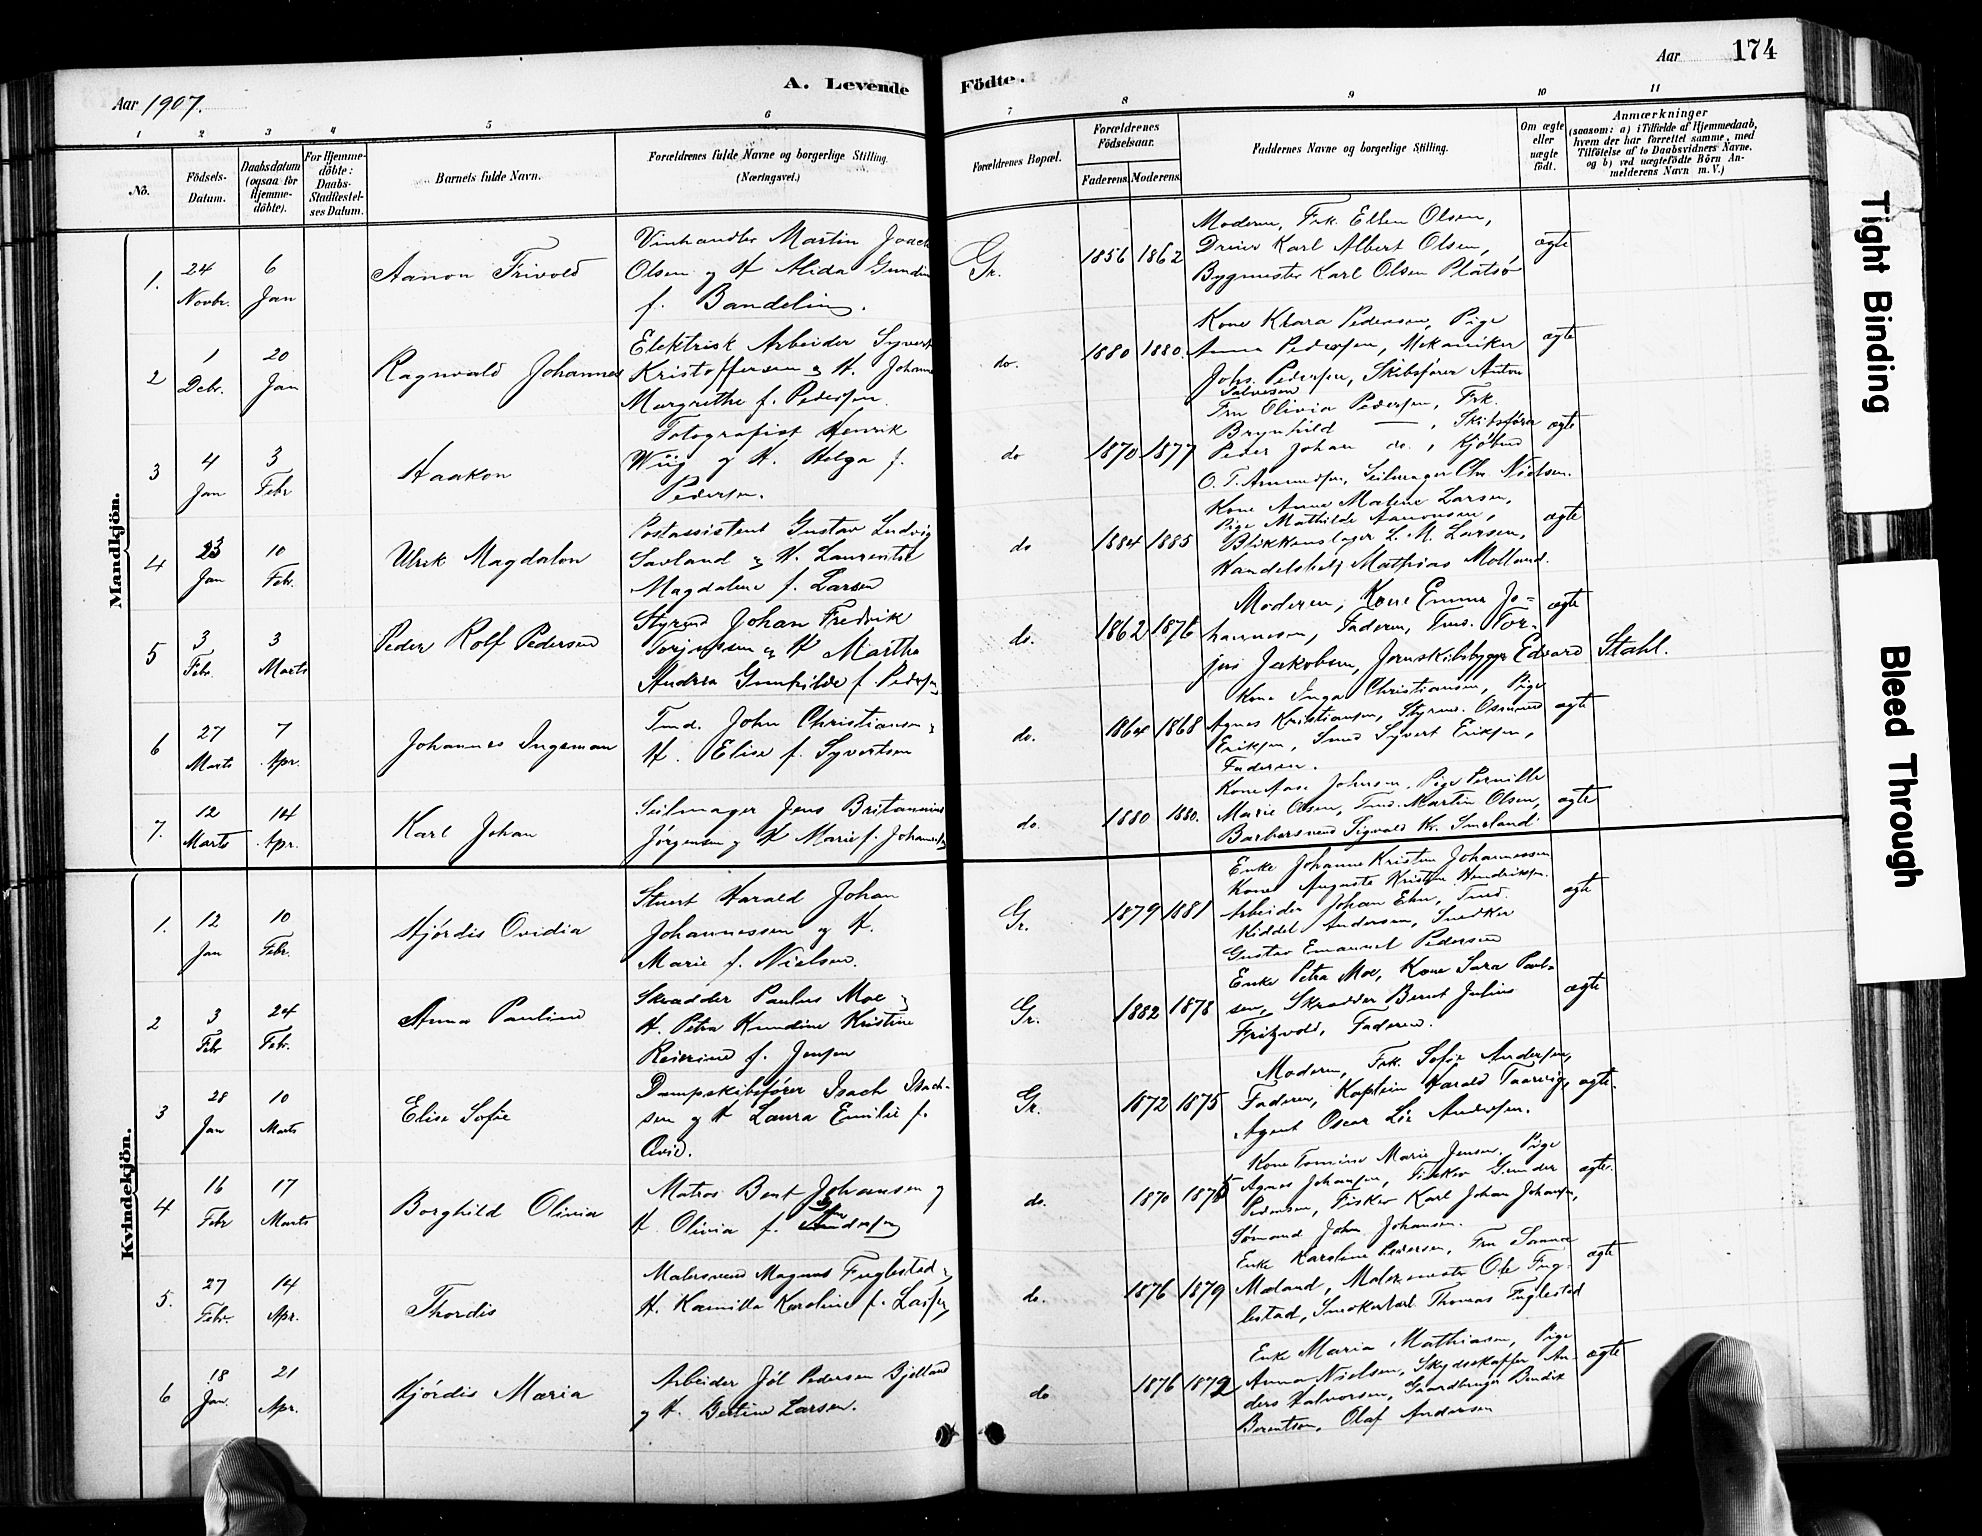 174
Aar
A. Levende Födte.
Aar 1907.
1 2 3 4 5 6 7 8 9 10 11
No.
Födsels-
Datum.
Daabsdatum
(ogsaa for
Hjemme-
döbte).
For Hjemme-
döbte:
Daabs-
Stadfæstel-
ses Datum.
Barnets fulde Navn.
Forældrenes fulde Navne og borgerlige Stilling.
(Næringsvei.)
Forældrenes Bopæl.
Forældrenes
Födselsaar.
Faderens. Moderens.
Faddernes Navne og borgerlige Stilling.
Om ægte
eller
uægte
født.
Anmærkninger
(saasom: a) i Tilfælde af Hjemmedaab,
hvem der har forrettet samme, med
Tilföielse af to Daabsvidners Navne.
og b) ved uægtefödte Börn An-
melderens Navn m. V.)
Mandkjön.
1.
24
Novbr.
6
Jan
Aanon Trivold
Vinhandler Martin Joach
Olsen og H. Alida Gundin
f. Bandeling.
Gr.
1856 1862
Moderen, Frk. Ellen Olsen,
Karl Albert Olsen,
Bygmester Karl Olsen Platsø
ægte
2
1
Debr.
20
Jan
Ragnvald Johannes
Elektrisk Arbeider Syvert
Kristoffersen og H. Johanne
Margrethe f. Pedersen.
do.
1880 1880.
Kone Klara Pedersen, Pige
Anna Pedersen, Mekaniker
Johs. Pedersen, Skibsfører Anton
Salvesen
ægte
3
4
Jan
3
Febr
Haakon
Fotografist Henrik
Wiig og H. Helga f.
Pedersen.
do
1870 1877
Fru Olivia Pedersen, Frk.
Brynhild — , Skibsfører
Peder Johan do., Kjøbmd
O. T. Amundsen, Seilmager Chr. Nielsen.
ægte
4
23
Jan
10
Febr.
Ulrik Magdalon
Postassistent Gustav Ludvig
Savland og H. Laurentse
Magdalene f. Larsen
do
1884 1885
Kone Anne Malene Larsen,
Pige Mathilde Aanonsen,
Blikkenslager L. M. Larsen,
Handelsbetj Mathias Molland.
ægte
5
3
Febr.
3
Marts
Peder Rolf Pedersen
Styrmd Johan Fredrik
Torjussen og H. Martha
Andrea Gunhilde f. Pedersen
do.
1862 1876
Moderen, Kone Emma Jo-
hannesen, Faderen, Tmd. Tor-
jus Jakobsen, Jernskibsbygger Edvard Stahl.
ægte
6
27
Marts
7
Apr.
Johannes Ingeman
Tmd. John Christiansen og
H. Elise f. Syvertsen
do.
1864 1868
Kone Inga Christiansen, Pige
Agnes Kristiansen, Styrmd. Osmund
Eriksen, Smed Syvert Eriksen,
Faderen.
ægte
7.
12
Marts
14
Apr.
Karl Johan
Seilmager Jens Britannius
Jørgensen og H Marie f. Johansen
do.
1880 1880.
Kone Aase Johnsen, Pige Pernille
Marie Olsen, Tmd. Martin Olsen,
Barbersvend Sigvald Kr. Smeland
ægte
Kvindekjön.
1.
12
Jan
10
Febr.
Hjórdis Ovidia
Stuert Harald Johan
Johannessen og H.
Marie f. Nielsen.
Gr.
1879 1881
Enke Johanne Kristine Johannessen
Kone Augusta Kristine Hendriksen.
Arbeider Johan Ehn, Tmd.
Kiddel Andersen, Snedker
Gustav Emanuel Pedersen
ægte
2
3
Febr
24
Febr.
Anna Pauline
Skrædder Paulus Moe og
H. Petra Kundine Kristine
Reierine f. Jensen
Gr.
1882 1878
Enke Petra Moe, Kone Sara Paul-
sen, Skrædder Bernt Julius
Fritzvold, Faderen.
ægte
3
28
Jan
10
Marts
Elise Sofie
Dampskibsfører Isach Isach-
sen og H Laura Emilie f.
Qvid.
Gr.
1872 1875
Moderen, Frk. Sofie Andersen,
Faderen, Kaptein Harald Taarvig,
Agent Oscar Lie Andersen.
ægte.
4
16
Febr
17
Marts
Borghild Olivia
Matros Bent Johansen og
H. Olivia f.
do.
1870 1875
Kone Tomine Marie Jensen, Pige
Agnes Johansen, Fisker Gunder
Pedersen, Fisker Karl Johan Johansen,
Sømand John Johansen.
ægte.
5.
27
Febr.
14
Apr.
Thordis
Malersvend Magnus Fuglestad og
H. Kamilla Karoline f. Larsen
do.
1876 1879
Enke Karoline Pedersen, Fru Sanna
Moland, Malermester Ole Fug-
lestad, Snedkerlærl. Thomas Fuglestad
ægte
6
18
Jan.
21
Apr.
Hjórdis Maria
Arbeider Jöl Pedersen Bjelland
og H. Bertine Larsen.
do
1876 1872
Enke Maria Mathiasen, Pige
Anna Nielsen, Skydsskaffer An-
ders Halvorsen, Gaardbruger Bendik
Berentsen, Olaf Andersen
ægte
Tight Binding
Bleed Through